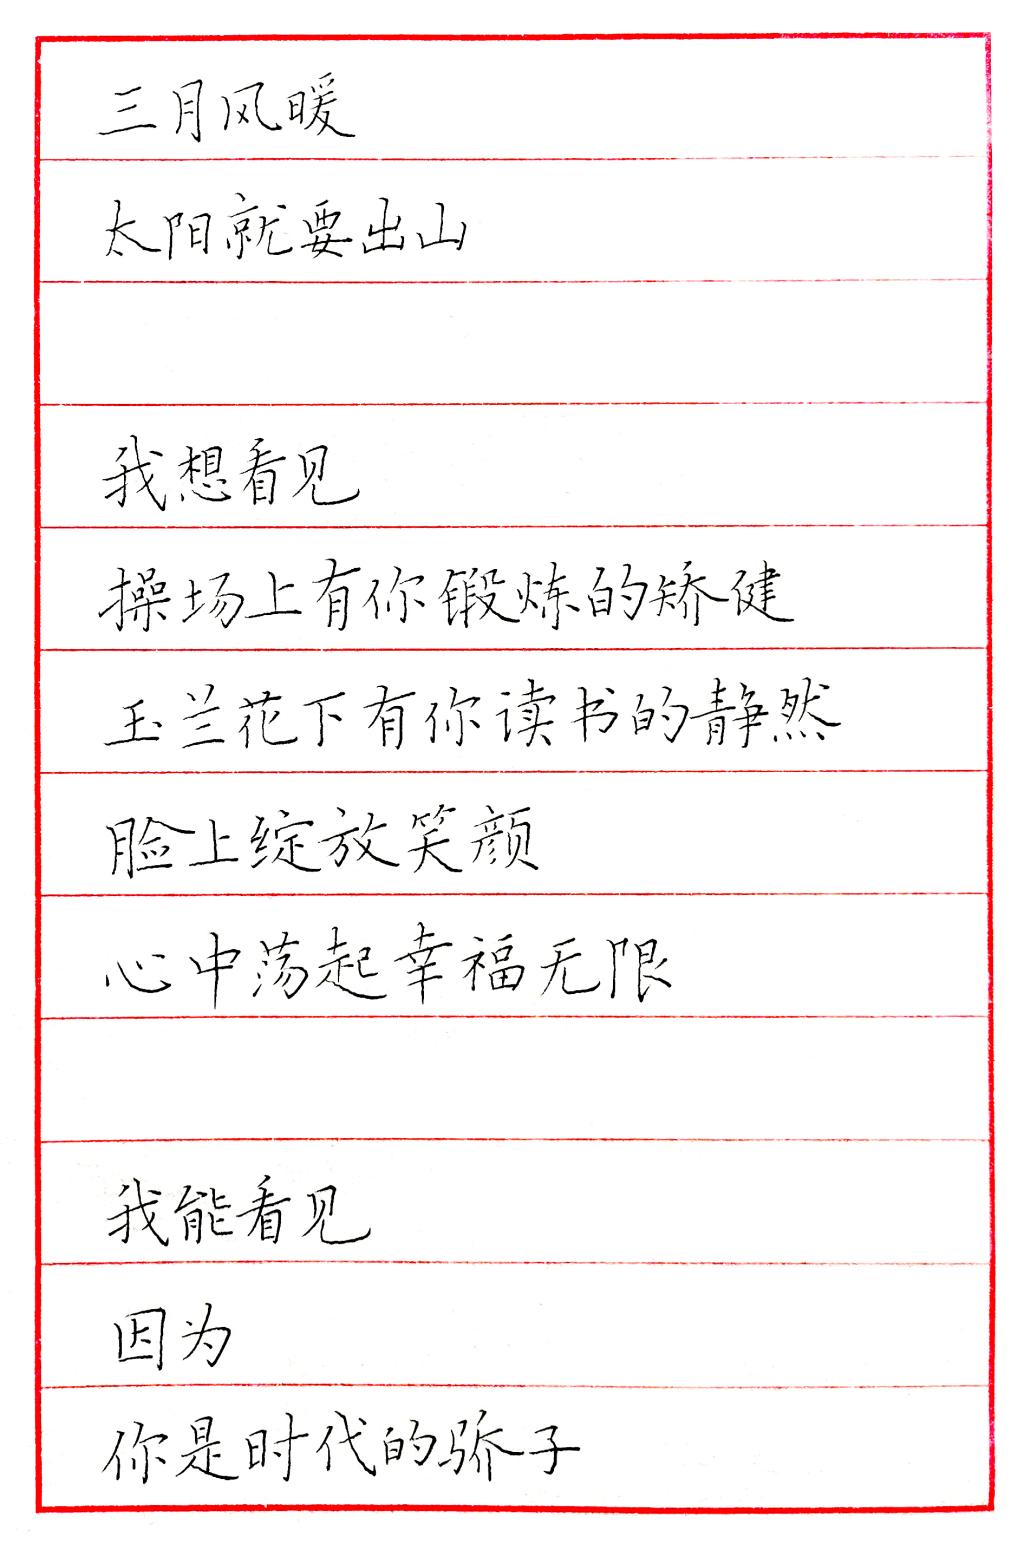 三月风暖
太阳就要出山
我想看见
操场上有你锻炼的矫健
玉兰花下有你读书的静然
脸上绽放笑颜
心中荡起幸福无限
我能看见
因为
你是时代的骄子